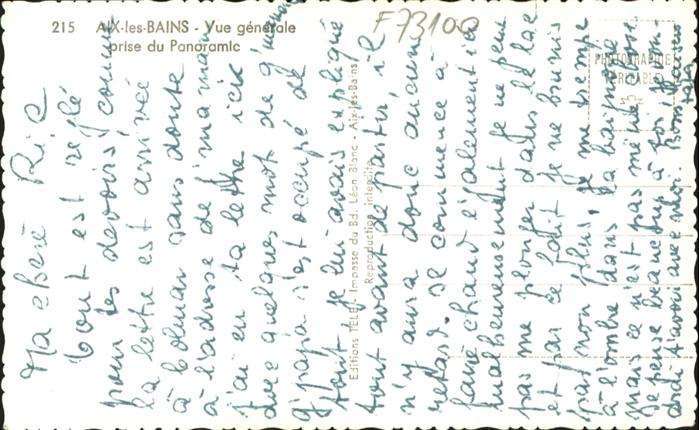 215 AIX-les-BAINS - Vue générale
prise du Panoramic
F73100
PHOTOGRAPHIE
VERITABLE
Editions TELE - Impasse du Bd. Léon Blanc - Aix-les-Bains
Reproduction interdite
Ma chère Ric
Tout est réglé
pour les devoirs, comme
la lettre est arrivée
à Colmar sans doute
à l'adresse de maman
j'ai eu ta lettre ici
avec quelques mot de
papa s'est occupé de
tout je lui avais expliqué
tout avant de partir il
n'y aura donc aucun
retard. Il commence à
faire chaud également ici
malheureusement je ne peux
pas me plonger dans le lac
et par ce fait je ne brunis
pas non plus. Je me trempe
à l'ombre dans la baignoire
mais ce n'est pas même chose
je pense beaucoup à toi
t'avoir avec moi.